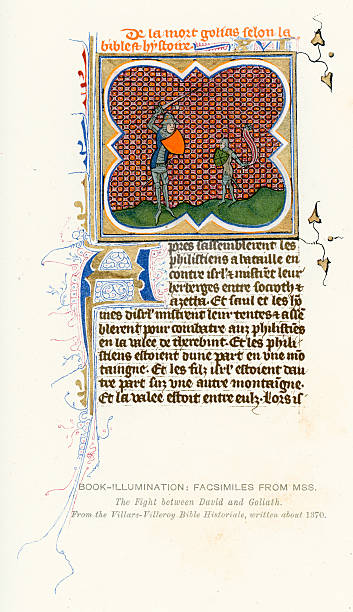 De la mort golias selon la
bible & hystoire
Apres sassemblerent les
philistiens a bataille en
contre isrl' & mistrēt leur
herberges entre socoth &
azetha. Et saul et les hō
mes disrl' mistrent leur tentes & assē
blerent pour combatre auz philistiēs
en la valee de therebint. Et les phili
stiens estoient dune part en une mō
taingne. Et les filz isrl' estoient dau
tre part sur une autre montaingne.
Et la valee estoit entre eulz. Lors is
BOOK-ILLUMINATION: FACSIMILES FROM MSS.
The Fight between David and Goliath.
From the Villars-Villeroy Bible Historiale, written about 1370.